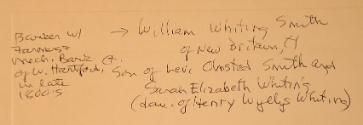 Banker w/
Farmers +
Mech. Bank Ct.
of W. Hartford,
in late
1800s
→ William Whiting Smith
of New Britain, Ct
Son of Levi Olmsted Smith and
Sarah Elizabeth Whiting
(dau. of Henry Wyllys Whiting)